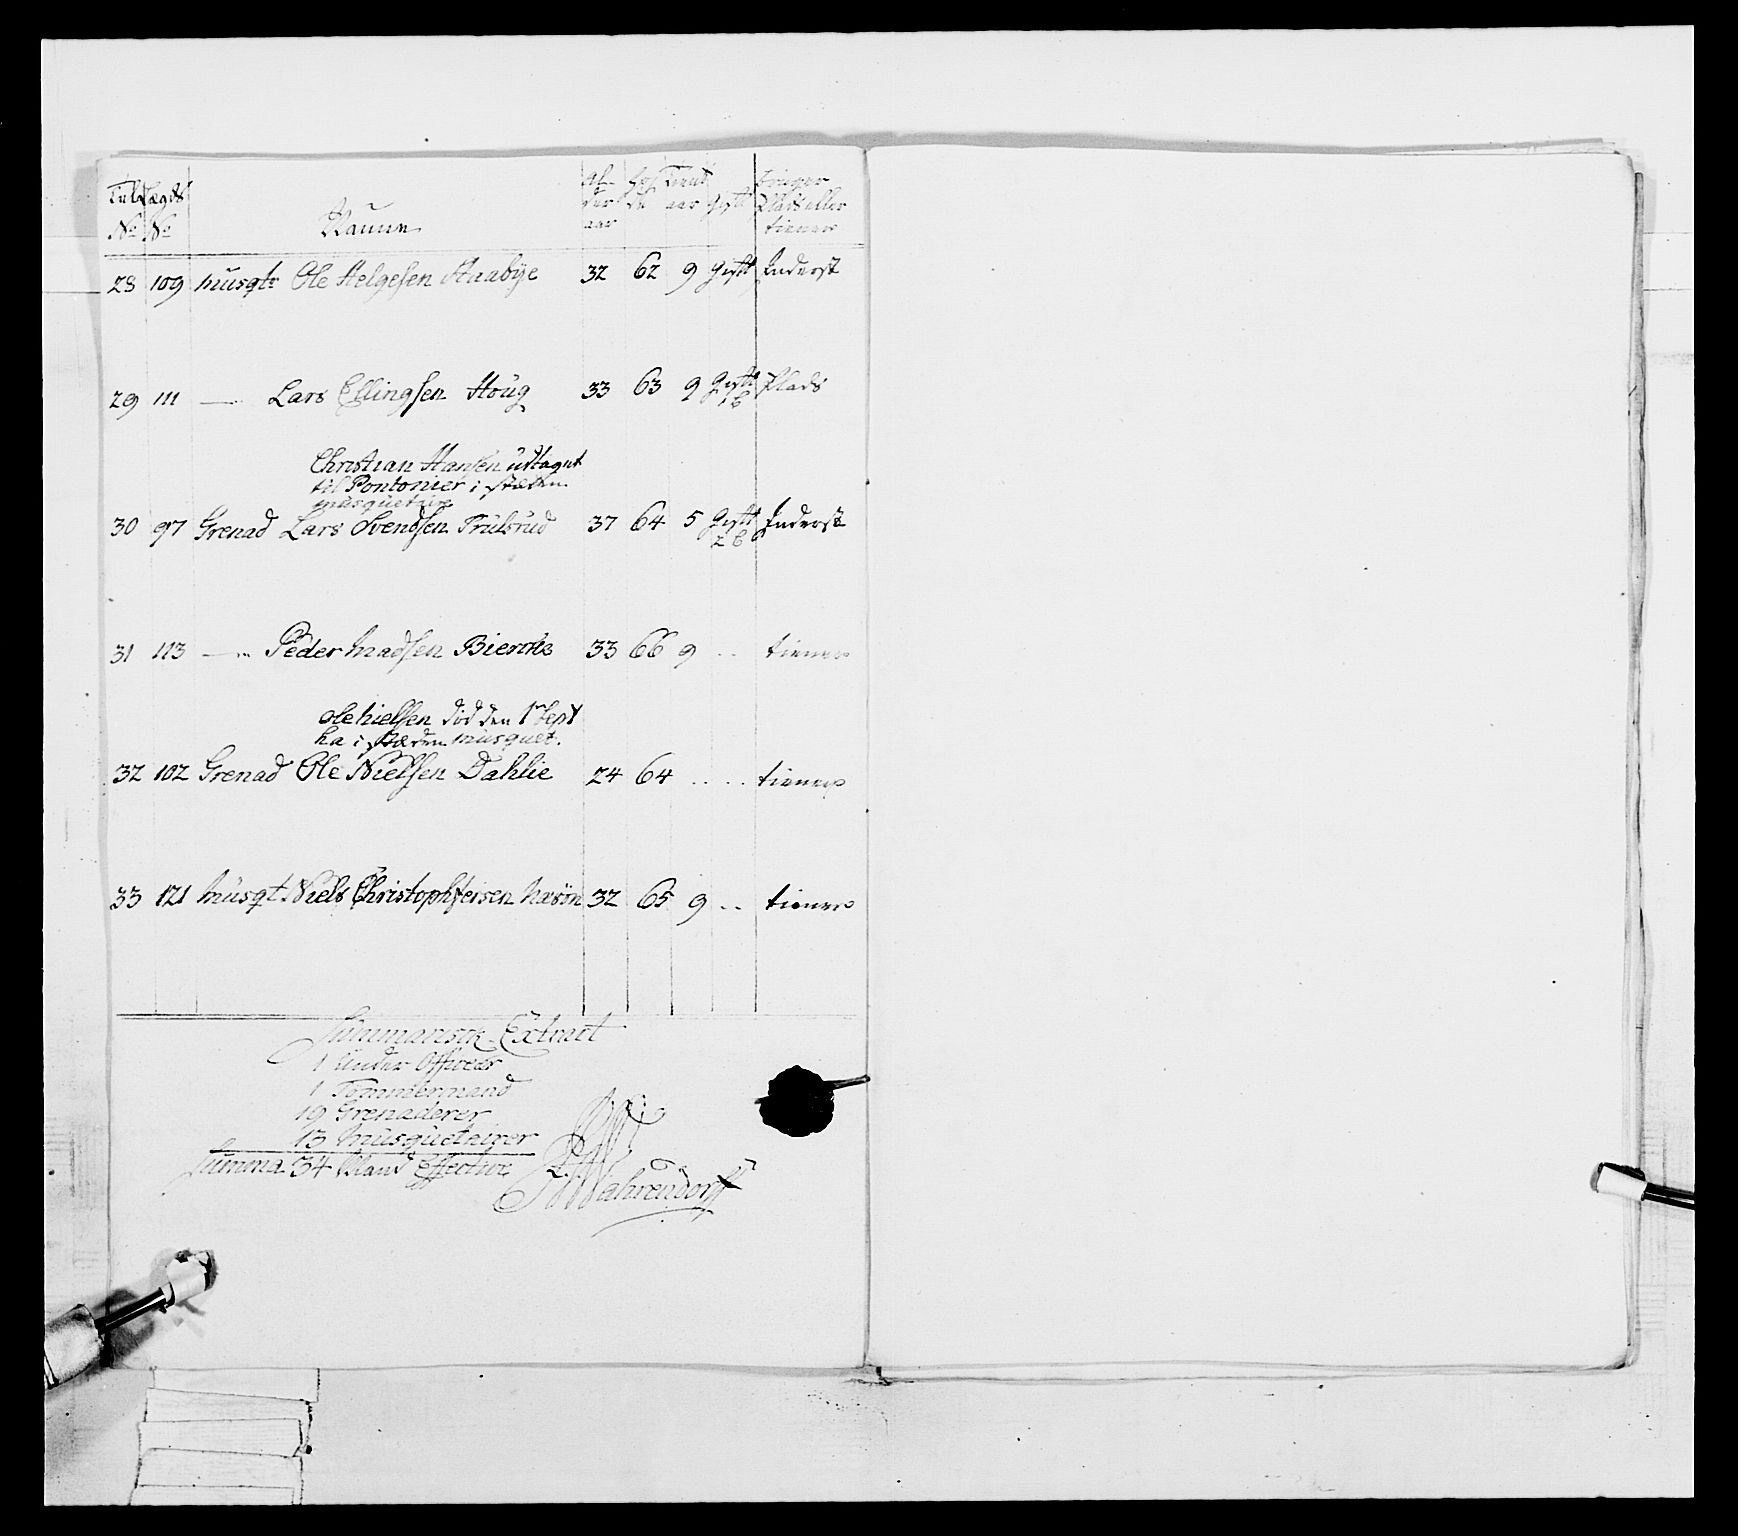 Tal Lægds Al- Høi Tient Bruger
der de aar Gift Plads eller
No No Naune aar tiener
28 109 Musqt Ole Helgesen Haabye 32 62 9 Gift Inderst
29 111 — Lars Ellingsen Houg 33 63 9 Gift Plads
1 B
Christian Hansen udtaget
til Pontonier i stæden
musqueteir
30 97 Grenad Lars Svendsen Trulsrud 37 64 5 Gift Inderst
2 B
31 113 — Peder Madsen 33 66 9 .. tiener
Ole Nielsen död den 1 Sept
ha i stæden musquet.
32 102 Grenad Ole Nielsen Dahlie 24 64 .. .. tiener
33 121 Musqt Niels Christophersen 32 65 9 .. tiener
Summarisk Extract
1 Under Officeer
1 Tömmermand
19 Grenaderer
13 Musqueterer
Summa 34 Mand Effective
Wahrendorff